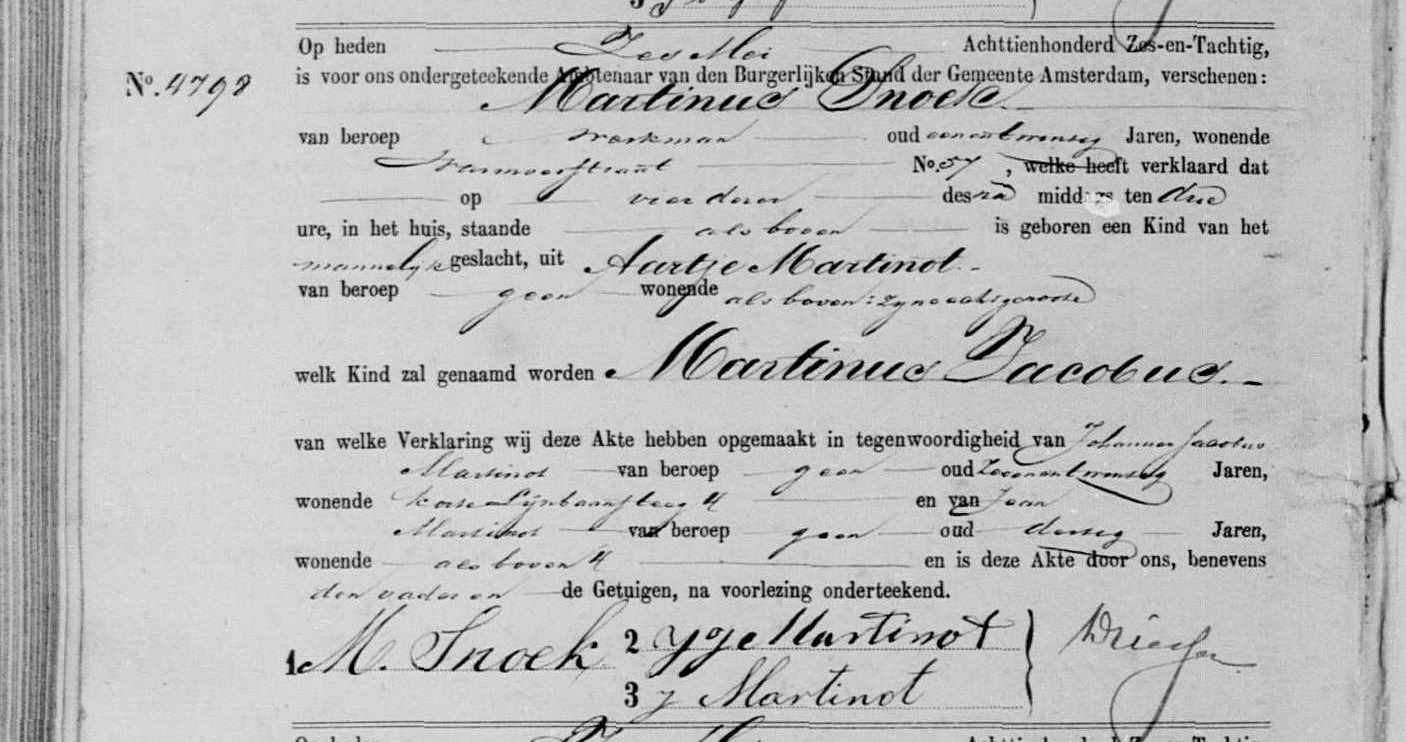 Op heden Zes Mei Achttienhonderd Zes-en-Tachtig,
No. 4798 is voor ons ondergeteekende Ambtenaar van den Burgerlijken Stand der Gemeente Amsterdam, verschenen:
Martinus Snoek
van beroep werkman oud eenentwintig Jaren, wonende
Warmoesstraat No. 57, welke heeft verklaard dat
op vier dezer des na middags ten drie
ure, in het huis, staande als boven is geboren een Kind van het
mannelijk geslacht, uit Aartje Martinot
van beroep geen wonende als boven: zyne echtgenoote
welk Kind zal genaamd worden Martinus Jacobus.
van welke Verklaring wij deze Akte hebben opgemaakt in tegenwoordigheid van Johannes Jacobus
Martinot van beroep geen oud Jaren,
wonende Korte Lijnbaansteeg 4 en van Jean
Martinot van beroep geen oud dertig Jaren,
wonende als boven 4 en is deze Akte door ons, benevens
den vader en de Getuigen, na voorlezing onderteekend.
1 M. Snoek 2 Martinot
3 J Martinot